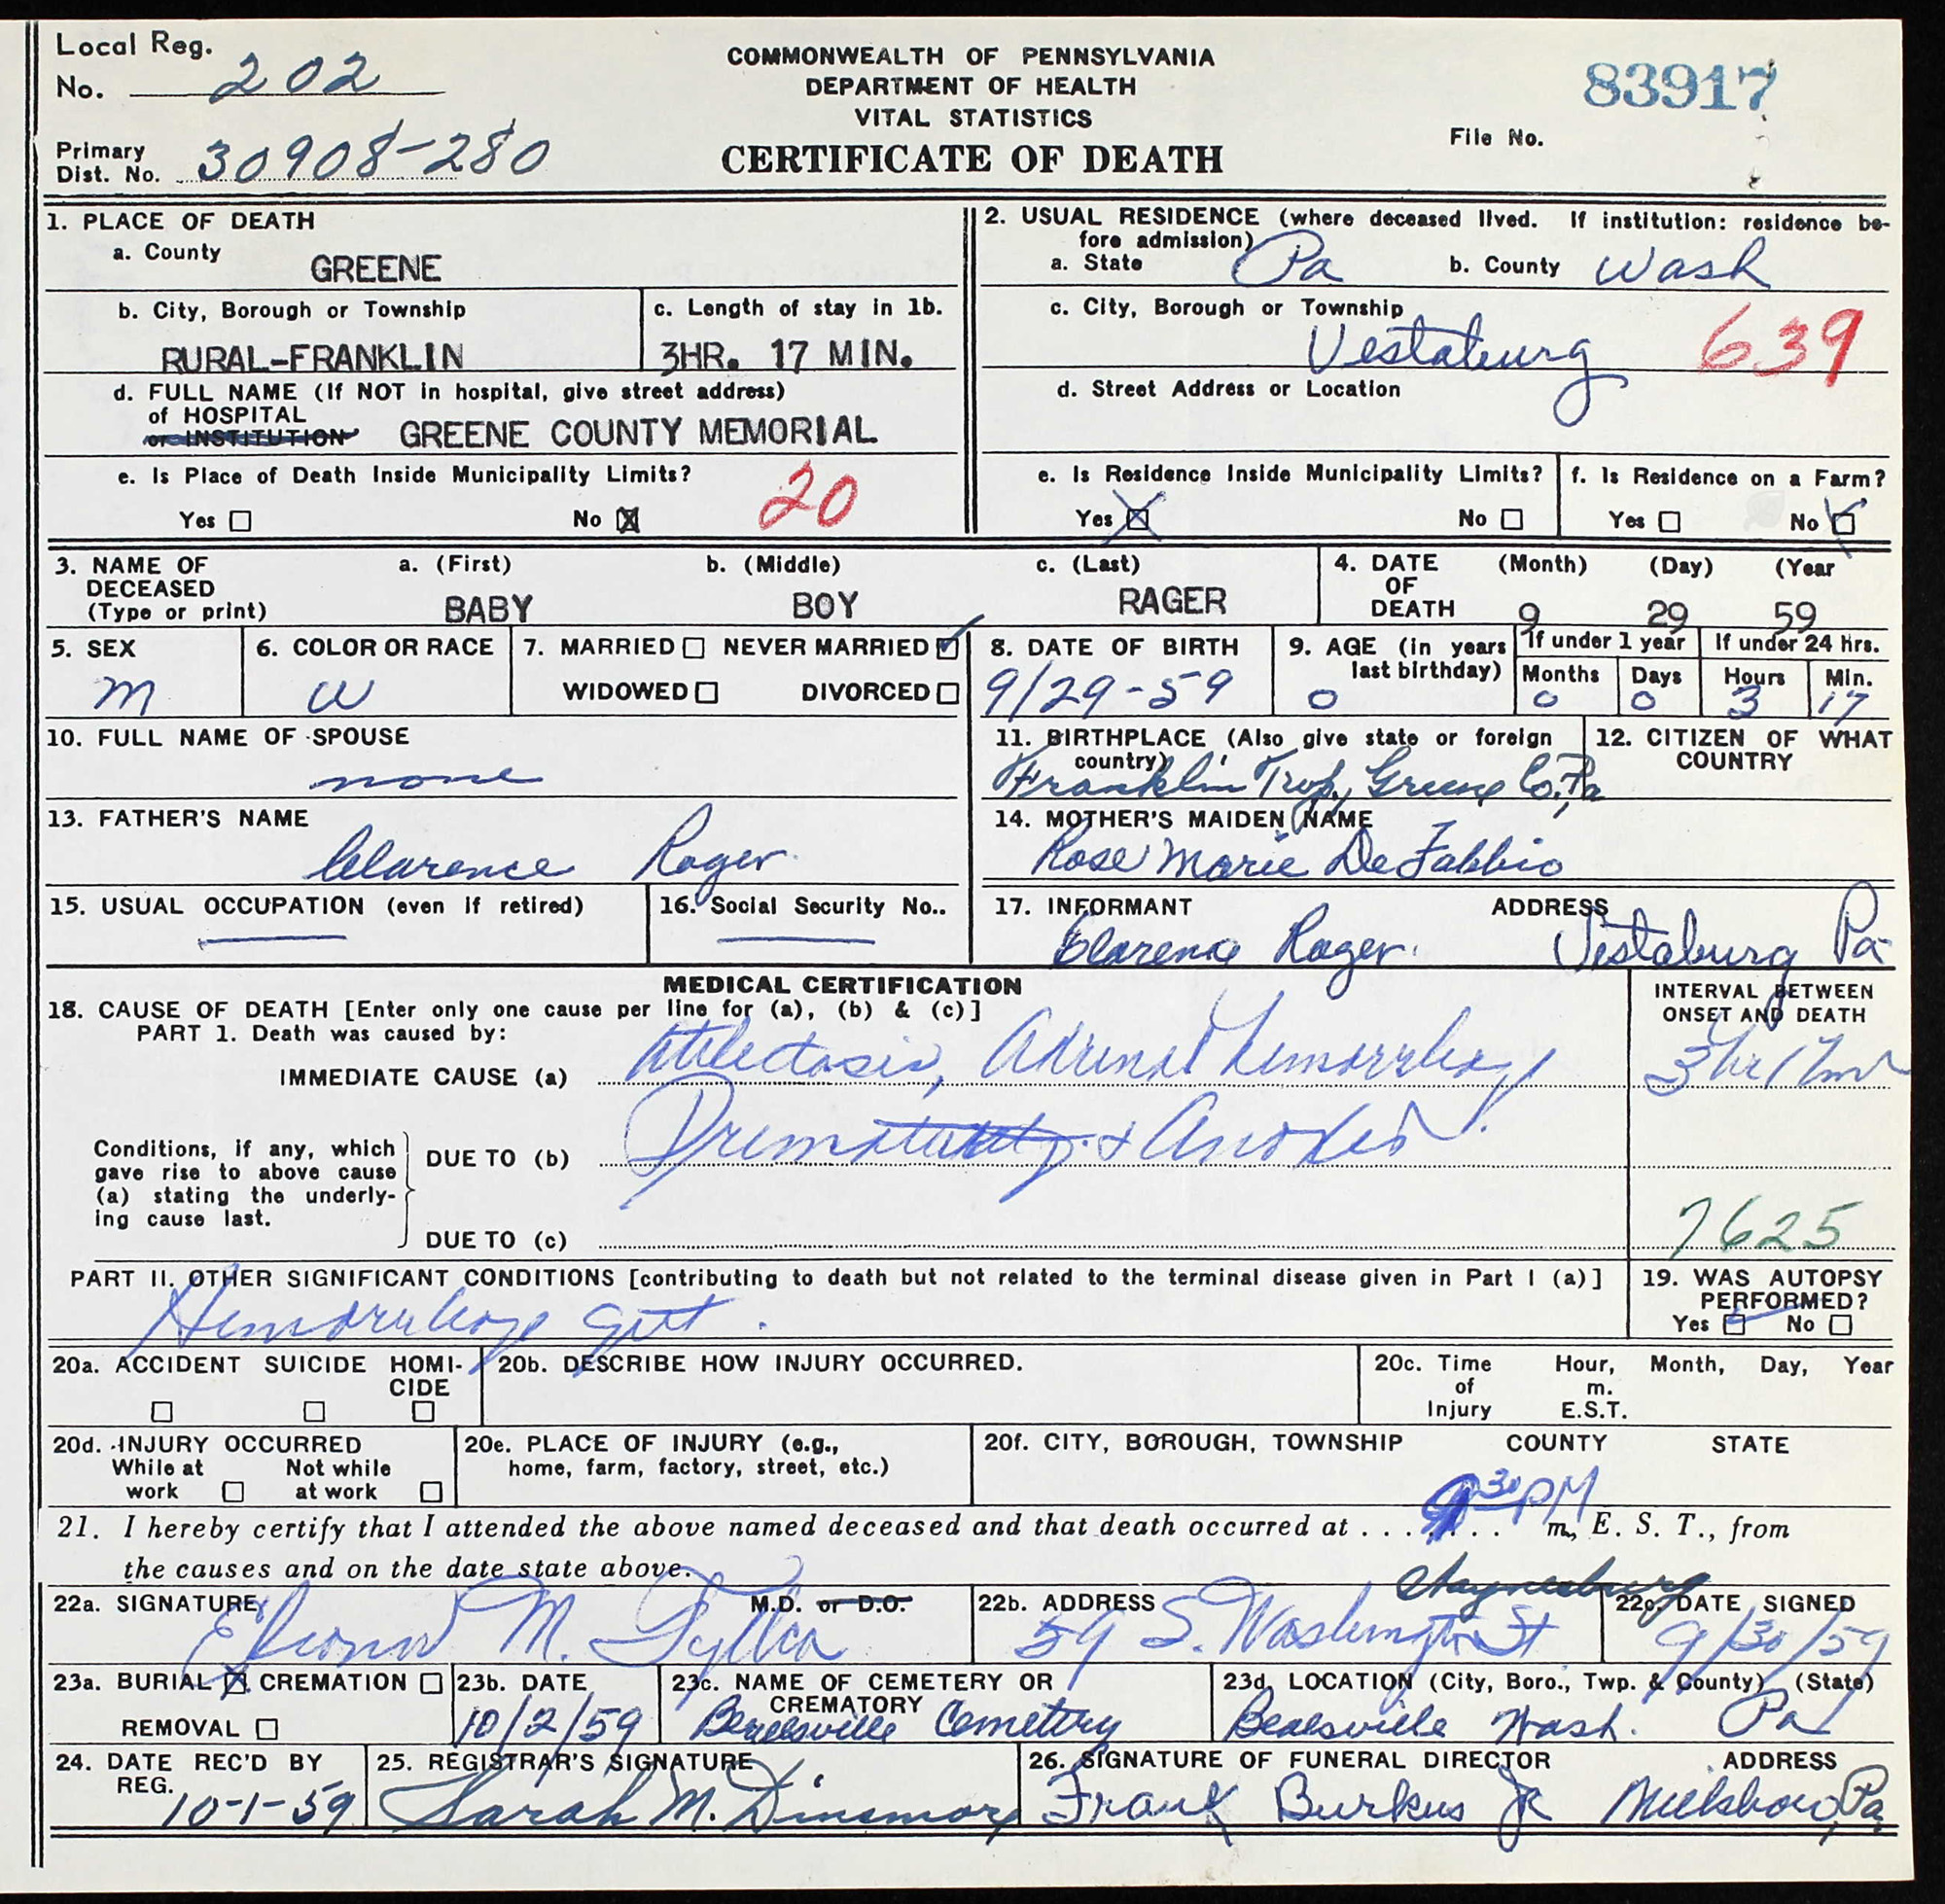 Local Reg.
No. 202
COMMONWEALTH OF PENNSYLVANIA
DEPARTMENT OF HEALTH
VITAL STATISTICS
CERTIFICATE OF DEATH
83917
File No.
Primary
Dist. No. 30908-280
1. PLACE OF DEATH
a. County
GREENE
b. City, Borough or Township
RURAL-FRANKLIN
c. Length of stay in 1b.
3HR. 17 MIN.
d. FULL NAME (If NOT in hospital, give street address)
of HOSPITAL
or INSTITUTION GREENE COUNTY MEMORIAL
e. Is Place of Death Inside Municipality Limits?
Yes No 20
2. USUAL RESIDENCE (where deceased lived. If institution: residence be-
fore admission)
a. State Pa b. County Wash
c. City, Borough or Township
Vestaburg 639
d. Street Address or Location
e. Is Residence Inside Municipality Limits?
Yes No
f. Is Residence on a Farm?
Yes No
3. NAME OF
DECEASED
(Type or print)
a. (First)
BABY
b. (Middle)
BOY
c. (Last)
RAGER
4. DATE
OF
DEATH
(Month) (Day) (Year
9 29 59
5. SEX
M
6. COLOR OR RACE
W
7. MARRIED NEVER MARRIED
WIDOWED DIVORCED
8. DATE OF BIRTH
9/29-59
9. AGE (in years
last birthday)
0
If under 1 year
Months Days
0 0
If under 24 hrs.
Hours Min.
3 17
10. FULL NAME OF SPOUSE
none
11. BIRTHPLACE (Also give state or foreign
country)
Franklin Twp, Greene Co, Pa
12. CITIZEN OF WHAT
COUNTRY
13. FATHER'S NAME
Clarence Rager
14. MOTHER'S MAIDEN NAME
Rose Marie DeFabbio
15. USUAL OCCUPATION (even if retired)
16. Social Security No..
17. INFORMANT ADDRESS
Clarence Rager. Vestaburg Pa
MEDICAL CERTIFICATION
18. CAUSE OF DEATH [Enter only one cause per line for (a), (b) & (c)]
PART 1. Death was caused by:
IMMEDIATE CAUSE (a) Atelectasis, Adrenal hemorrhage
INTERVAL BETWEEN
ONSET AND DEATH
3 hr 17 mi
Conditions, if any, which
gave rise to above cause
(a) stating the underly-
ing cause last.
DUE TO (b) Prematurity & Anoxia
DUE TO (c)
7625
PART II. OTHER SIGNIFICANT CONDITIONS [contributing to death but not related to the terminal disease given in Part I (a)]
Hemorrhage gut.
19. WAS AUTOPSY
PERFORMED?
Yes No
20a. ACCIDENT SUICIDE HOMI-
CIDE
20b. DESCRIBE HOW INJURY OCCURRED.
20c. Time
of
Injury
Hour, Month, Day, Year
m.
E.S.T.
20d. INJURY OCCURRED
While at
work
Not while
at work
20e. PLACE OF INJURY (e.g.,
home, farm, factory, street, etc.)
20f. CITY, BOROUGH, TOWNSHIP COUNTY STATE
21. I hereby certify that I attended the above named deceased and that death occurred at . . . 9 30 PM m., E. S. T., from
the causes and on the date state above.
22a. SIGNATURE M.D. or D.O.
M.
22b. ADDRESS Waynesburg
59 S. Washington St
22c. DATE SIGNED
9/30/59
23a. BURIAL CREMATION
REMOVAL
23b. DATE
10/2/59
23c. NAME OF CEMETERY OR
CREMATORY
Beallsville Cemetery
23d. LOCATION (City, Boro., Twp. & County) (State)
Bealsville Wash. Pa
24. DATE REC'D BY
REG.
10-1-59
25. REGISTRAR'S SIGNATURE
Sarah M. Dinsmore
26. SIGNATURE OF FUNERAL DIRECTOR ADDRESS
Frank Burkus Jr Millsboro, Pa.